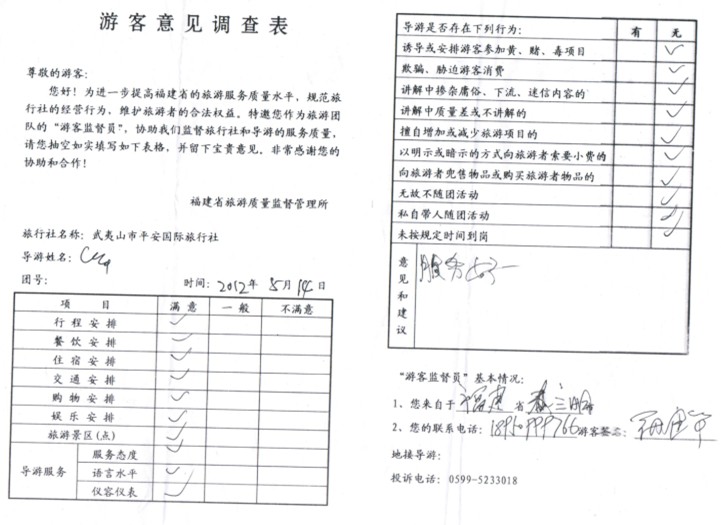 游客意见调查表
尊敬的游客:
您好！为进一步提高福建省的旅游服务质量水平，规范旅
行社的经营行为，维护旅游者的合法权益，特邀您作为旅游团
队的“游客监督员”，协助我们监督旅行社和导游的服务质量，
请您抽空如实填写如下表格，并留下宝贵意见，非常感谢您的
协助和合作！
福建省旅游质量监督管理所
旅行社名称: 武夷山市平安国际旅行社
导游姓名:
团号: 时间: 2012年 5月 14日
项 目 满意 一般 不满意
行程安排 ✓
餐饮安排 ✓
住宿安排 ✓
交通安排 ✓
购物安排 ✓
娱乐安排 ✓
旅游景区(点) ✓
导游服务 服务态度 ✓
语言水平 ✓
仪容仪表 ✓
导游是否存在下列行为: 有 无
诱导或安排游客参加黄、赌、毒项目 ✓
欺骗、胁迫游客消费 ✓
讲解中掺杂庸俗、下流、迷信内容的 ✓
讲解中质量差或不讲解的 ✓
擅自增加或减少旅游项目的 ✓
以明示或暗示的方式向旅游者索要小费的 ✓
向旅游者兜售物品或购买旅游者物品的 ✓
无故不随团活动 ✓
私自带人随团活动 ✓
未按规定时间到岗 ✓
意见和建议 服务好
“游客监督员”基本情况:
1、您来自于 福建 省
2、您的联系电话: 游客签名:
地接导游:
投诉电话: 0599-5233018